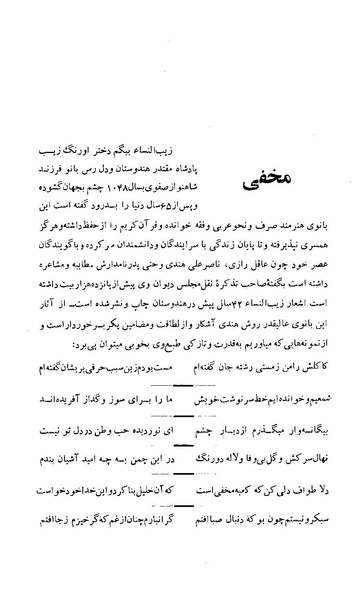 مخفی
زیب‌النساء بیگم دختر اورنگ زیب
پادشاه مقتدر هندوستان ودل رس بانو فرزند
شاهنواز صفوی بسال ۱۰۴۸ چشم بجهان گشوده
و پس از ۶۵ سال دنیا را بدرود گفته است این
بانوی هنرمند صرف و نحو عربی و فقه خوانده و قرآن کریم را از حفظ داشته و هرگز
همسری نپذیرفته و تا پایان زندگی با سرایندگان و دانشمندان سر کرده و با گویندگان
عصر خود چون عاقل رازی، ناصر علی هندی و حتی پدر نامدارش مطایبه و مشاعره
داشته است بگفتهٔ صاحب تذکرهٔ نقل مجلس دیوان وی پیش از پانزده هزار بیت داشته
است اشعار زیب‌النساء ۴۲ سال پیش در هندوستان چاپ و نشر شده است. از آثار
این بانوی عالیقدر روش هندی آشکار و از لطافت و مضامین بکر برخوردار است و از
نمونه‌هایی که میاوریم به قدرت و تازکی طبع وی بخوبی میتوان پی برد:
کاکلش را من زمستی رشته جان گفته‌ام مست بودم زین سبب حرفی پریشان گفته‌ام
شمعیم و خوانده‌ایم خط سرنوشت خویش ما را برای سوز و گداز آفریده‌اند
بیگانه‌وار میگذرم از دیار چشم ای نور دیده حب وطن در دل تو نیست
نهال سرکش و گل بی‌وفا و لاله دورنگ در این چمن به چه امید آشیان بندم
دلا طواف دلی کن که کعبه مخفی است که آن خلیل بنا کرد و این خدا خود خواست
سبکرو نیستم چون بو که دنبال صبا افتم گرانبارم چنان از غم که گر خیزم ز جا افتم